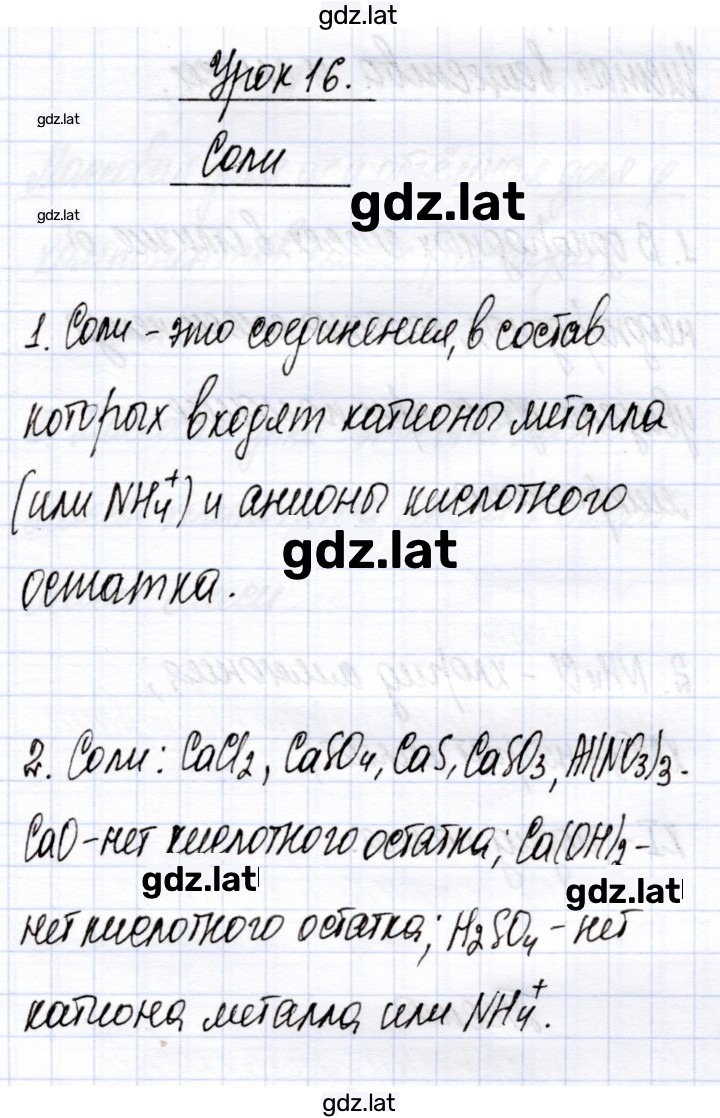 gdz.lat
Урок 16.
gdz.lat
Соли
gdz.lat
gdz.lat
1. Соли - это соединения, в состав
которых входят катионы металла
(или NH₄⁺) и анионы кислотного
gdz.lat
остатка.
2. Соли: CaCl₂, CaSO₄, CaS, CaSO₃, Al(NO₃)₃.
CaO - нет кислотного остатка; Ca(OH)₂ -
gdz.lat
gdz.lat
нет кислотного остатка; H₂SO₄ - нет
катиона металла или NH₄⁺.
gdz.lat